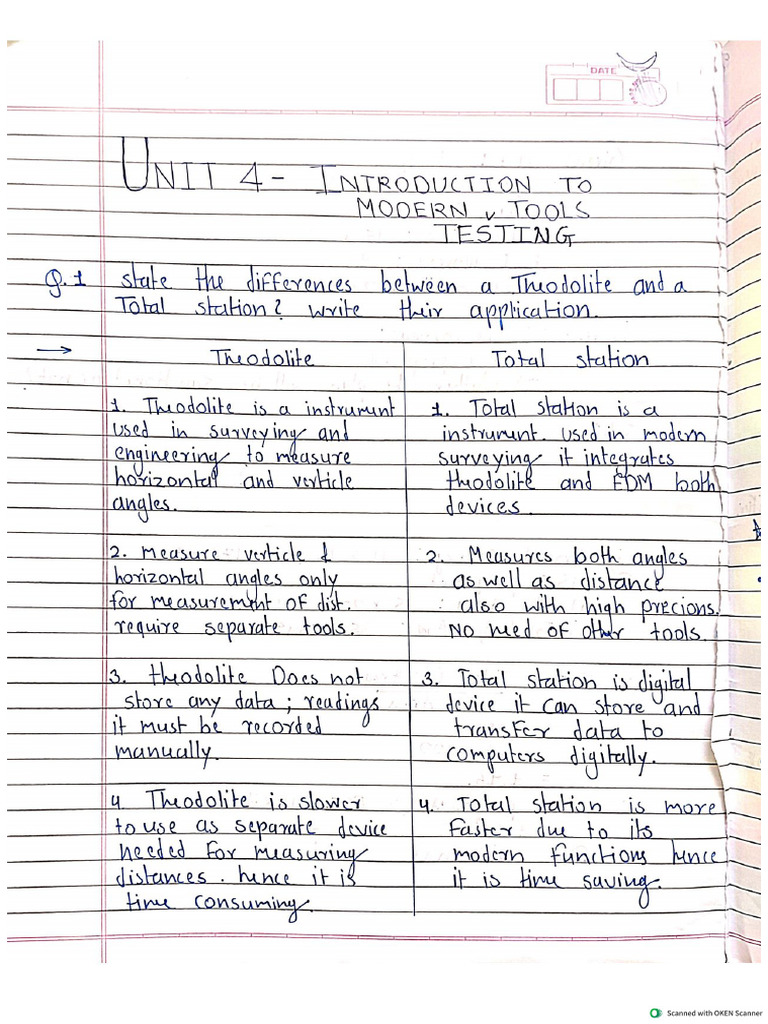 DATE
UNIT 4 - INTRODUCTION TO
MODERN v TOOLS
TESTING
Q.1 state the differences between a Theodolite and a
Total station? write their application.
→ Theodolite
1. Theodolite is a instrument
used in surveying and
engineering to measure
horizontal and verticle
angles.
2. measure verticle &
horizontal angles only
for measurement of dist.
require separate tools.
3. theodolite Does not
store any data ; readings
it must be recorded
manually.
4 Theodolite is slower
to use as separate device
needed for measuring
distances . hence it is
time consuming.
Total station
1. Total station is a
instrument. used in modern
surveying it integrates
theodolite and EDM both
devices.
2. Measures both angles
as well as distance
also with high precions.
No need of other tools.
3. Total station is digital
device it can store and
transfer data to
computers digitally.
4. Total station is more
faster due to its
modern functions hence
it is time saving.
Scanned with OKEN Scanner